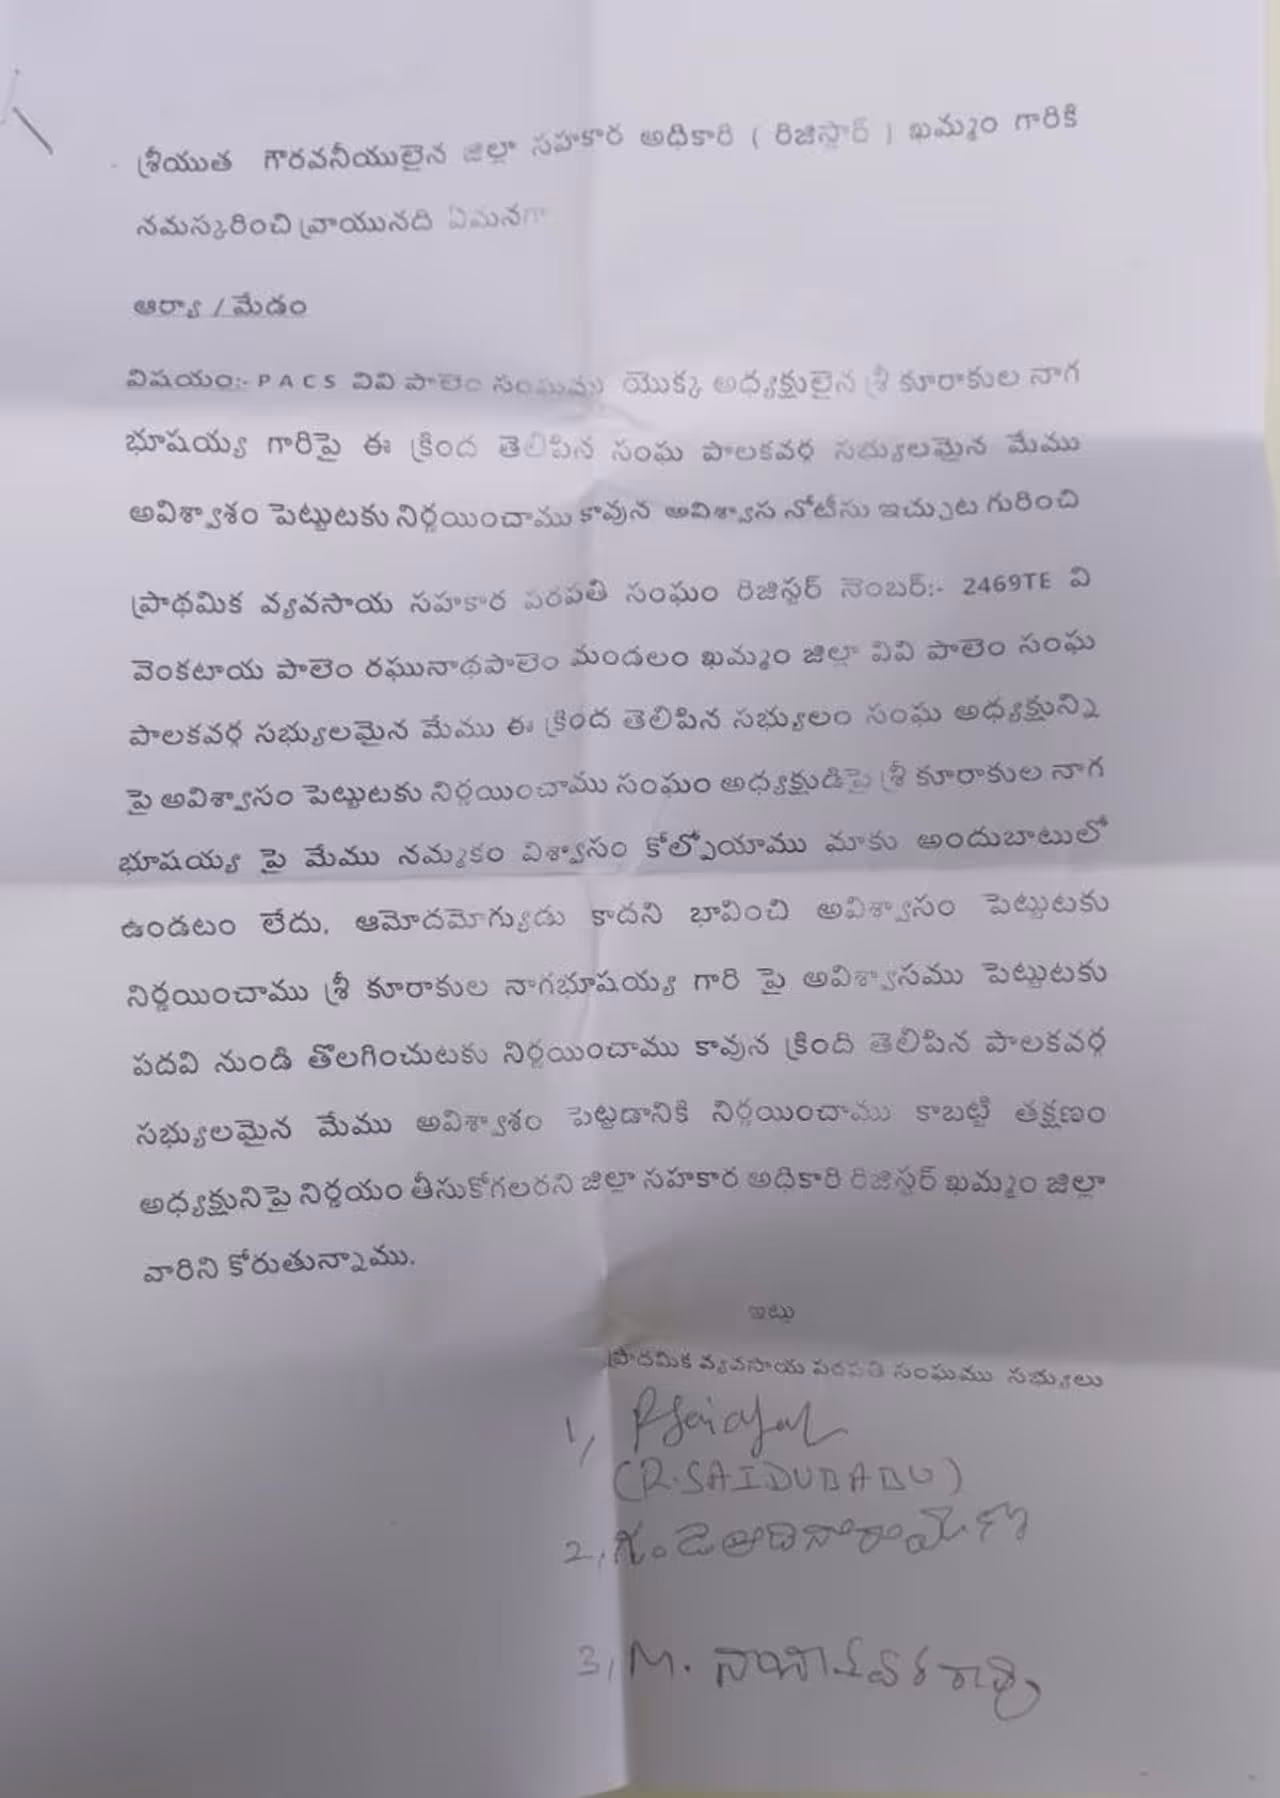 శ్రీయుత గౌరవనీయులైన జిల్లా సహకార అధికారి ( రిజిస్టార్ ) ఖమ్మం గారికి
నమస్కరించి వ్రాయునది ఏమనగా
ఆర్యా / మేడం
విషయం:- PACS వివి పాలెం సంఘము యొక్క అధ్యక్షులైన శ్రీ కూరాకుల నాగ
భూషయ్య గారిపై ఈ క్రింద తెలిపిన సంఘ పాలకవర్గ సభ్యులమైన మేము
అవిశ్వాశం పెట్టుటకు నిర్ణయించాము కావున అవిశ్వాస నోటీసు ఇచ్చుట గురించి
ప్రాథమిక వ్యవసాయ సహకార పరపతి సంఘం రిజిస్టర్ నెంబర్:- 2469TE వి
వెంకటాయ పాలెం రఘునాథపాలెం మండలం ఖమ్మం జిల్లా వివి పాలెం సంఘ
పాలకవర్గ సభ్యులమైన మేము ఈ క్రింద తెలిపిన సభ్యులం సంఘ అధ్యక్షున్ని
పై అవిశ్వాసం పెట్టుటకు నిర్ణయించాము సంఘం అధ్యక్షుడిపై శ్రీ కూరాకుల నాగ
భూషయ్య పై మేము నమ్మకం విశ్వాసం కోల్పోయాము మాకు అందుబాటులో
ఉండటం లేదు. ఆమోదమోగ్యుడు కాదని భావించి అవిశ్వాసం పెట్టుటకు
నిర్ణయించాము శ్రీ కూరాకుల నాగభూషయ్య గారి పై అవిశ్వాసము పెట్టుటకు
పదవి నుండి తొలగించుటకు నిర్ణయించాము కావున క్రింది తెలిపిన పాలకవర్గ
సభ్యులమైన మేము అవిశ్వాశం పెట్టడానికి నిర్ణయించాము కాబట్టి తక్షణం
అధ్యక్షునిపై నిర్ణయం తీసుకోగలరని జిల్లా సహకార అధికారి రిజిస్టర్ ఖమ్మం జిల్లా
వారిని కోరుతున్నాము.
ఇట్లు
ప్రాదమిక వ్యవసాయ పరపతి సంఘము సభ్యులు
1,
(R.SAIDUBABU)
2,
3, M.